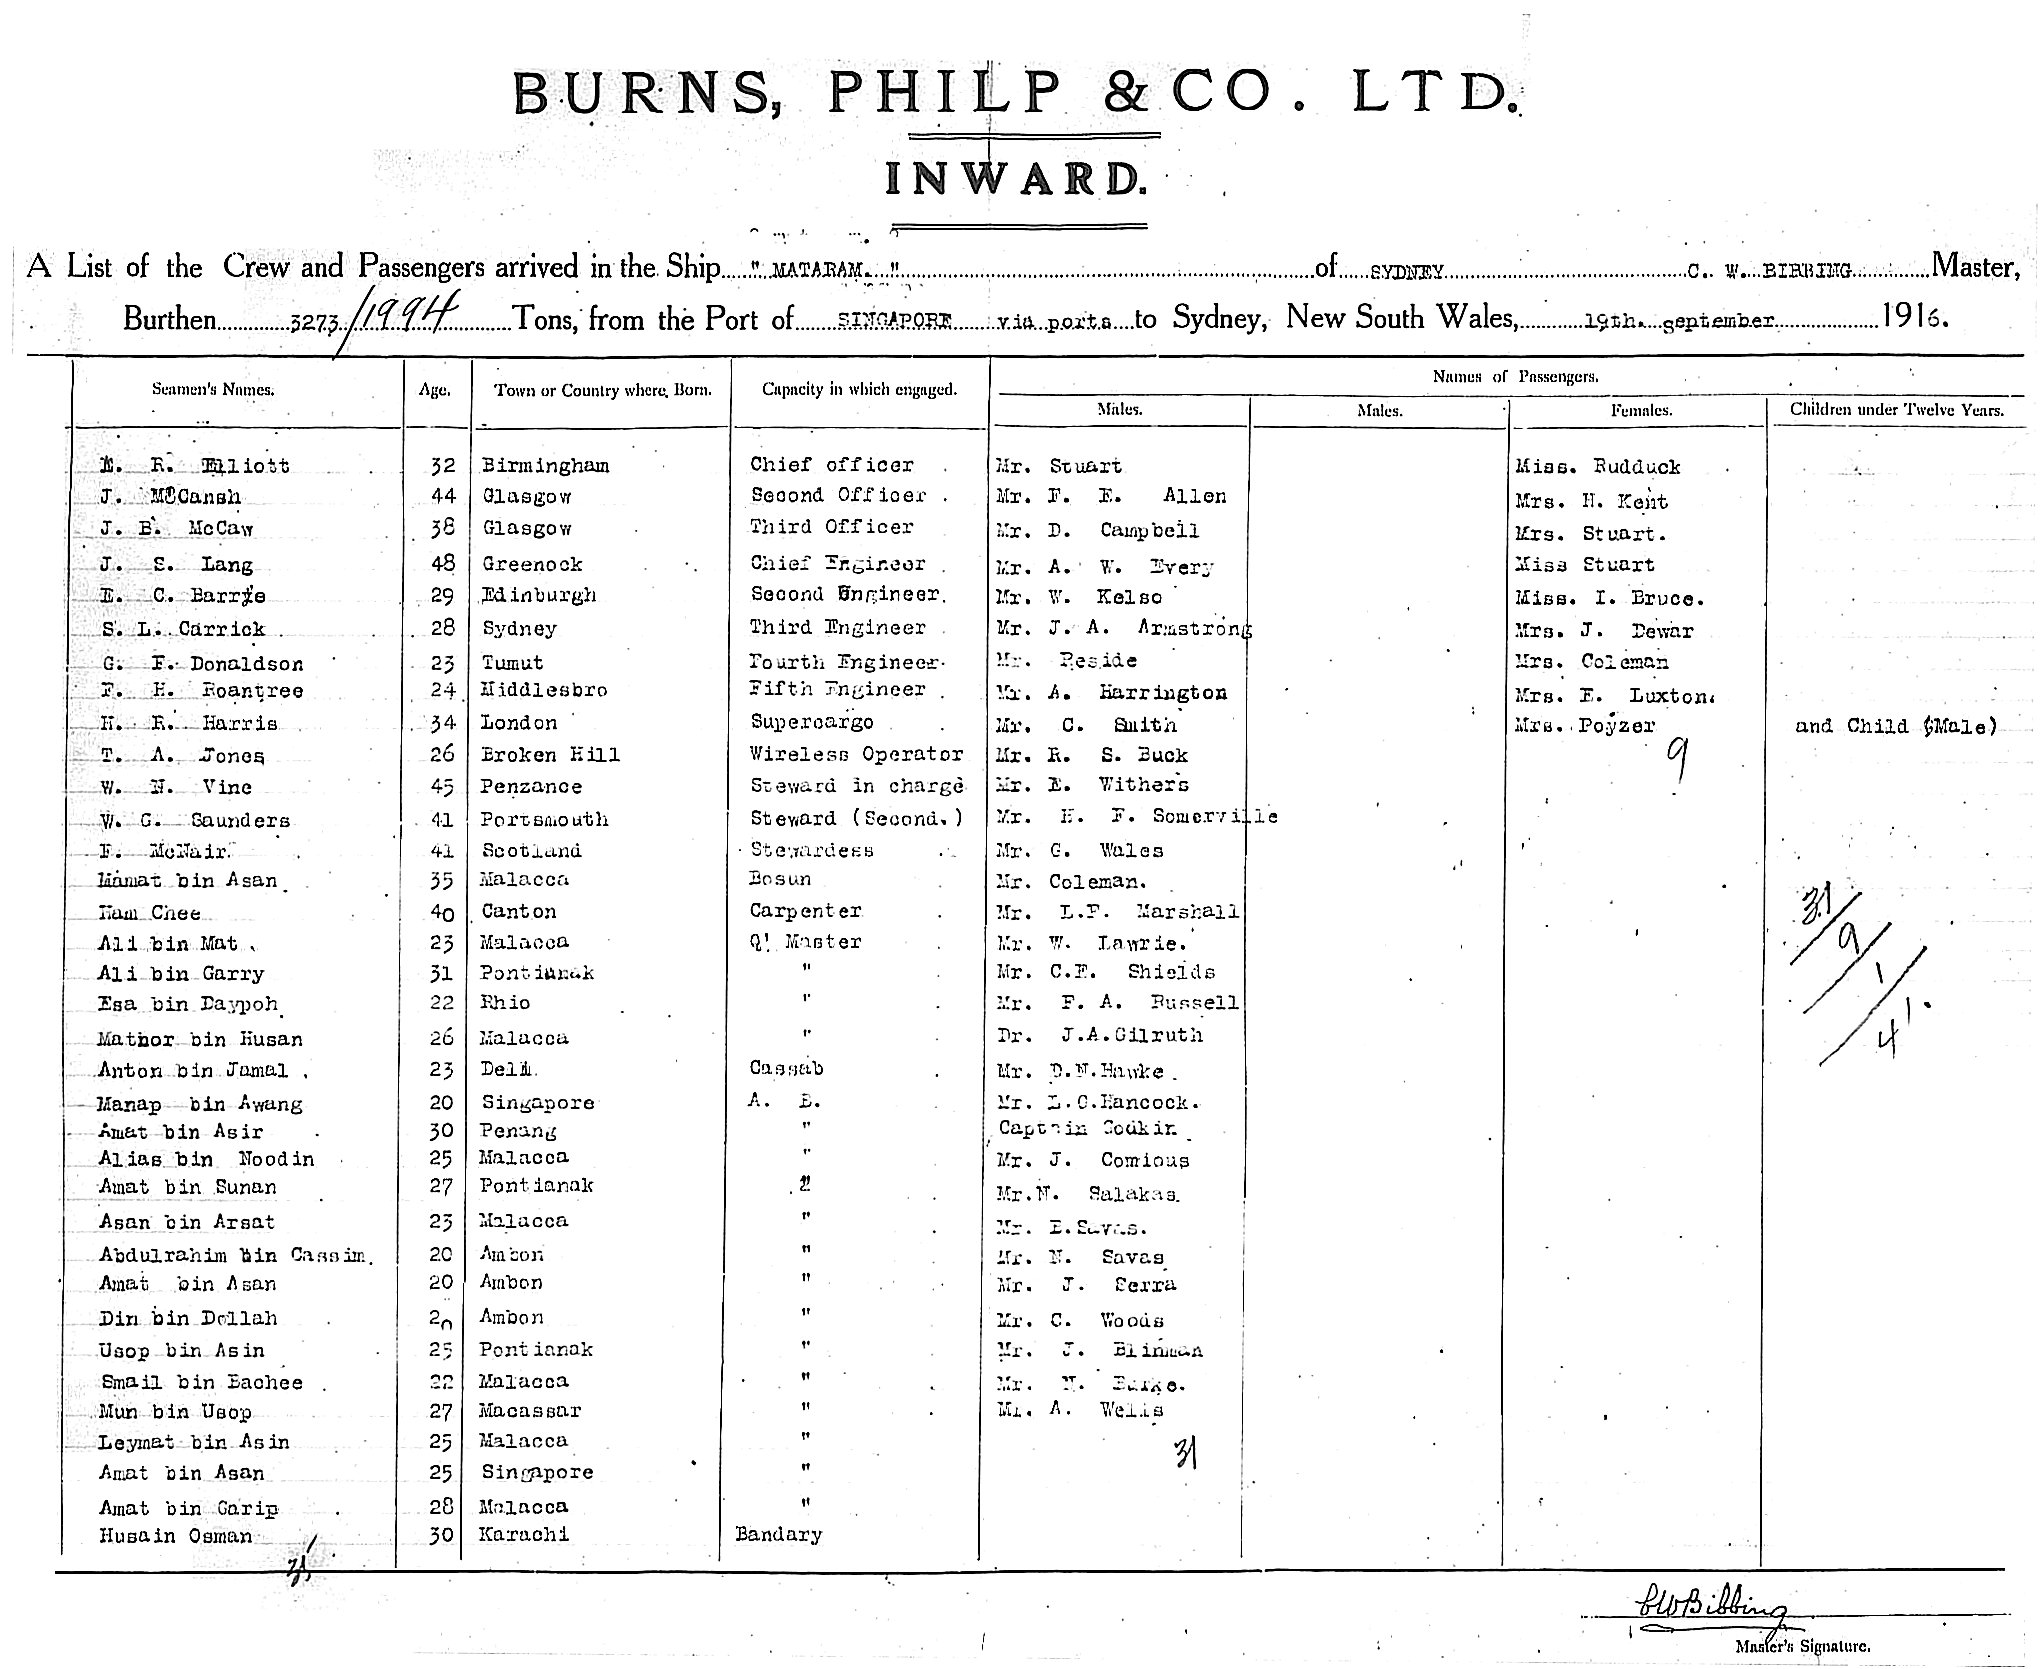 BURNS, PHILP & CO. LTD.
INWARD.
A List of the Crew and Passengers arrived in the Ship "MATARAM. " of SYDNEY C. W. BIBBING Master,
Burthen 3273/1994 Tons, from the Port of SINGAPORE via ports to Sydney, New South Wales, 19th. September 1916.
Names of Passengers.
Seamen's Names. Age. Town or Country where Born. Capacity in which engaged. Males. Males. Females. Children under Twelve Years.
E. R. Elliott 32 Birmingham Chief officer Mr. Stuart Miss. Rudduck
J. McCansh 44 Glasgow Second Officer Mr. F. E. Allen Mrs. H. Kent
J. B. McCaw 38 Glasgow Third Officer Mr. D. Campbell Mrs. Stuart.
J. S. Lang 48 Greenock Chief Engineer Mr. A. W. Every Miss Stuart
E. C. Barrie 29 Edinburgh Second Engineer. Mr. W. Kelso Miss. I. Bruce.
S. L. Carrick 28 Sydney Third Engineer Mr. J. A. Armstrong Mrs. J. Dewar
G. F. Donaldson 23 Tumut Fourth Engineer Mr. Reside Mrs. Coleman
F. H. Roantree 24 Middlesbro Fifth Engineer Mr. A. Harrington Mrs. E. Luxton.
H. R. Harris 34 London Supercargo Mr. C. Smith Mrs. Poyzer and Child (Male)
T. A. Jones 26 Broken Hill Wireless Operator Mr. R. S. Buck 9
W. N. Vine 45 Penzance Steward in charge Mr. E. Withers
W. G. Saunders 41 Portsmouth Steward (Second.) Mr. H. F. Somerville
F. McNair 41 Scotland Stewardess Mr. G. Wales
Mamat bin Asan 35 Malacca Bosun Mr. Coleman.
Ham Chee 40 Canton Carpenter Mr. L.F. Marshall 31
Ali bin Mat 23 Malacca Q! Master Mr. W. Lawrie. 9
Ali bin Garry 31 Pontianak " Mr. C.E. Shields 1
Esa bin Daypoh 22 Rhio " Mr. F. A. Russell
Mathor bin Husan 26 Malacca " Dr. J.A.Gilruth 41
Anton bin Jamal 23 Deli Cassab Mr. D.N.Hawke
Manap bin Awang 20 Singapore A. B. Mr. L.C.Hancock.
Amat bin Asir 30 Penang " Captain Godkin
Alias bin Noodin 25 Malacca " Mr. J. Comious
Amat bin Sunan 27 Pontianak " Mr.N. Salakas
Asan bin Arsat 23 Malacca " Mr. E.Savas.
Abdulrahim bin Cassim. 20 Ambon " Mr. N. Savas
Amat bin Asan 20 Ambon " Mr. J. Serra
Din bin Dollah 20 Ambon " Mr. C. Woods
Usop bin Asin 25 Pontianak " Mr. J. Blinman
Smail bin Bachee 22 Malacca " Mr. N. Burke.
Mun bin Usop 27 Macassar " Mr. A. Wells
Leymat bin Asin 25 Malacca "
Amat bin Asan 25 Singapore " 31
Amat bin Garip 28 Malacca "
Husain Osman 30 Karachi Bandary
CWBibbing
Master's Signature.